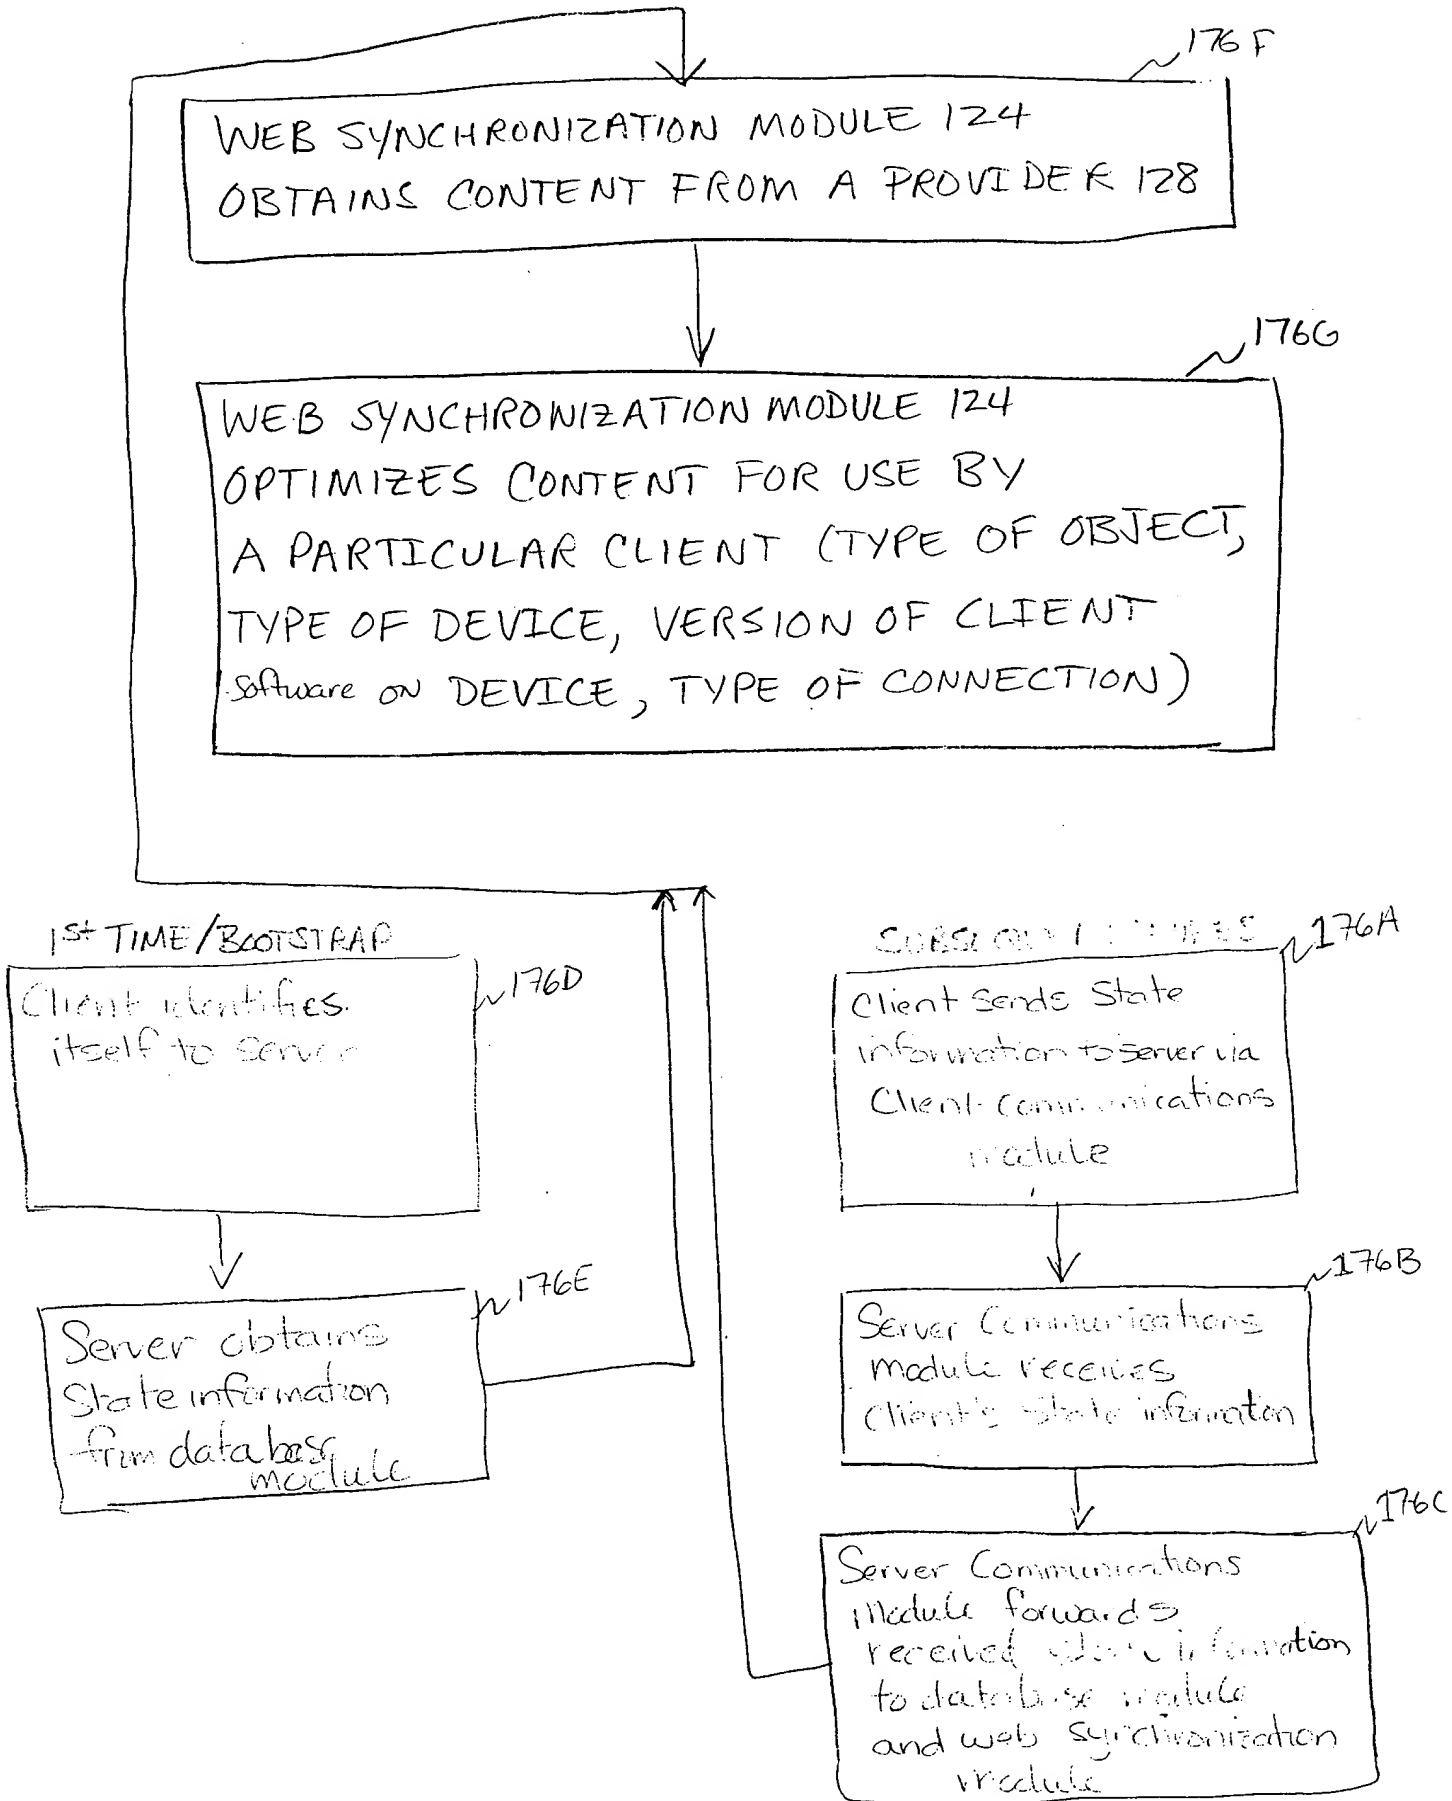 176F
WEB SYNCHRONIZATION MODULE 124
OBTAINS CONTENT FROM A PROVIDER 128
176G
WEB SYNCHRONIZATION MODULE 124
OPTIMIZES CONTENT FOR USE BY
A PARTICULAR CLIENT (TYPE OF OBJECT,
TYPE OF DEVICE, VERSION OF CLIENT
software ON DEVICE, TYPE OF CONNECTION)
1st TIME/BOOTSTRAP
176D
Client identifies
itself to server
176E
Server obtains
State information
from database
module
176A
Client sends State
information to server via
Client communications
module
176B
Server Communications
module receives
Client's state information
176C
Server Communications
Module forwards
received information
to database module
and web synchronization
module